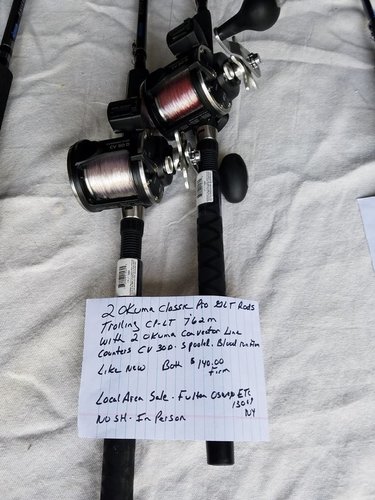 2 Okuma Classic Pro GLT Rods
Trolling CP-LT 7'6" 2m
With 2 Okuma Convector Line
Counters CV 30D. Spooled.
Like New Both $140.00
Firm
Local Area Sale - Fulton Oswego ETC
13069
NY
NO SH - In Person